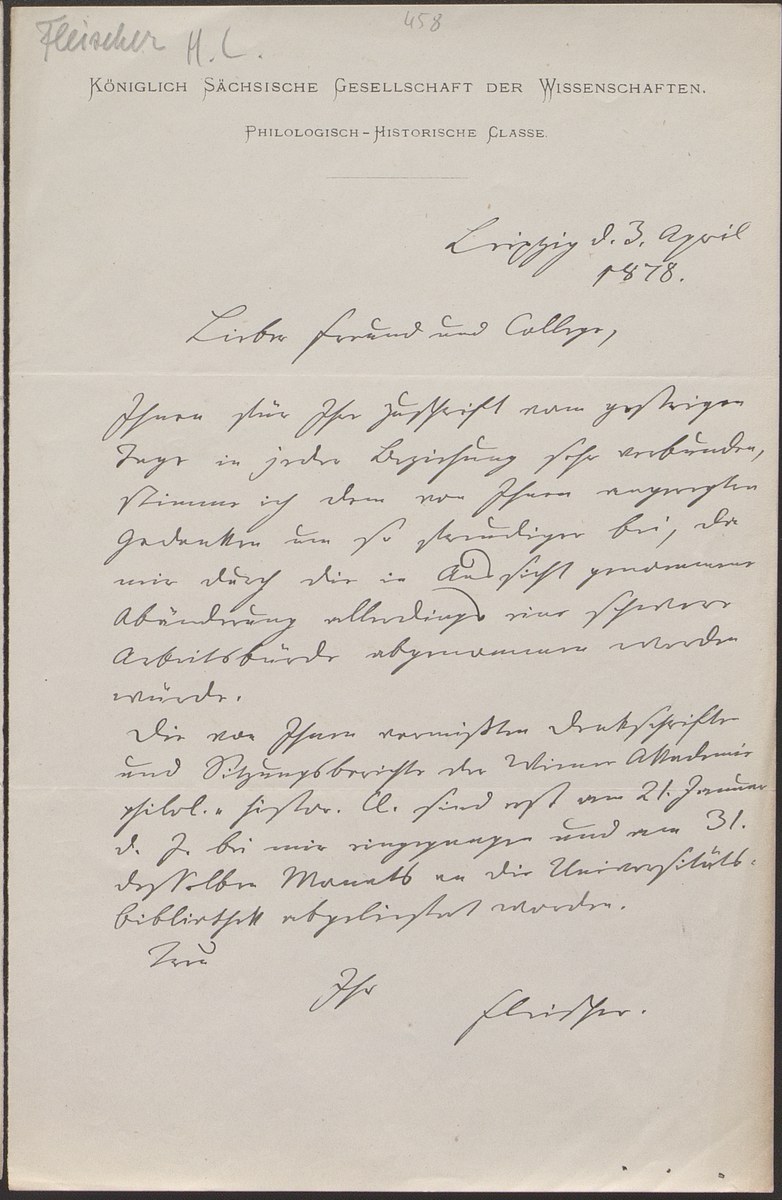 Fleischer H. L.
458
Königlich Sächsische Gesellschaft der Wissenschaften.
Philologisch-Historische Classe.
Leipzig d. 3. April
1878.
Lieber Freund und College,
Ihnen für Ihre Zuschrift vom gestrigen
Tage in jeder Beziehung sehr verbunden,
stimme ich dem von Ihnen angeregten
Gedanken um so freudiger bei, da
mir durch die in Aussicht genommene
Abänderung allerdings eine schwere
Arbeitsbürde abgenommen werden
würde.
Die von Ihnen vermißten Denkschriften
und Sitzungsberichte der Wiener Akademie
philol. u. histor. Cl. sind erst am 21. Januar
d. J. bei mir eingegangen und am 31.
desselben Monats an die Universitäts-
bibliothek abgeliefert worden.
Treu
Ihr
Fleischer.